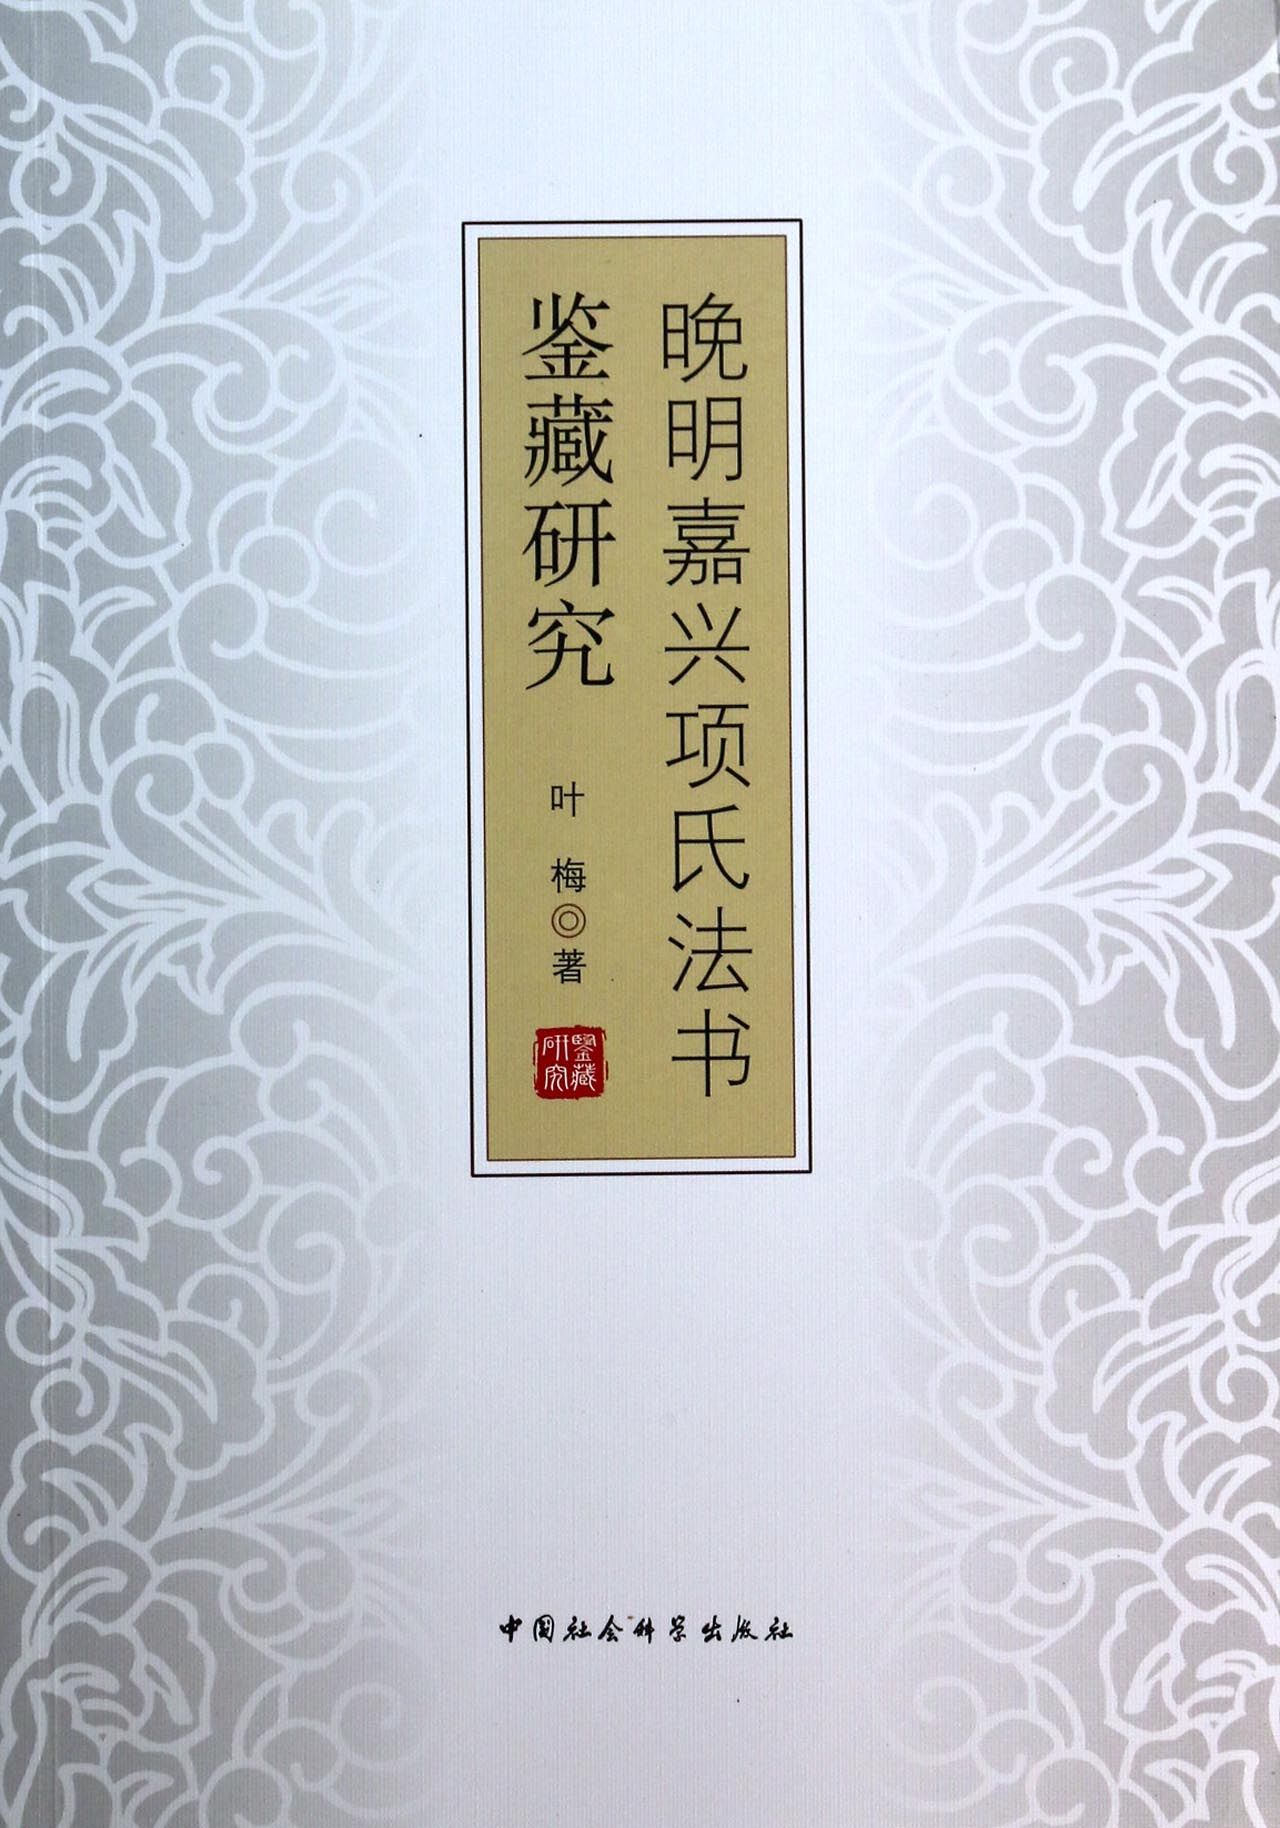 晚明嘉兴项氏法书
鉴藏研究
叶梅◎著
鑒藏
研究
中国社会科学出版社